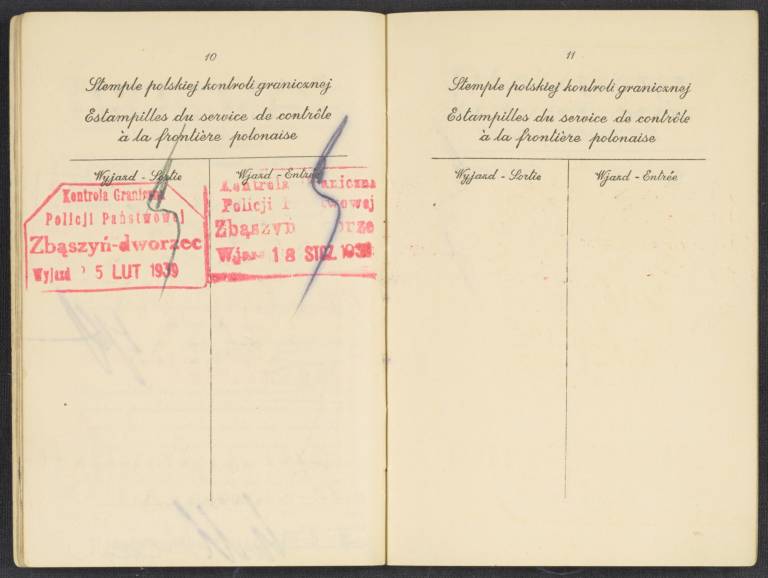 10
Stemple polskiej kontroli granicznej
Estampilles du service de contrôle
à la frontière polonaise
Wyjazd - Sortie
Wjazd - Entrée
Kontrola Graniczna
Policji Państwowej
Zbąszyń-dworzec
Wyjazd 5 LUT 1939
Kontrola Graniczna
Policji
Zbąszyń
18 STCZ 1939
11
Stemple polskiej kontroli granicznej
Estampilles du service de contrôle
à la frontière polonaise
Wyjazd - Sortie
Wjazd - Entrée